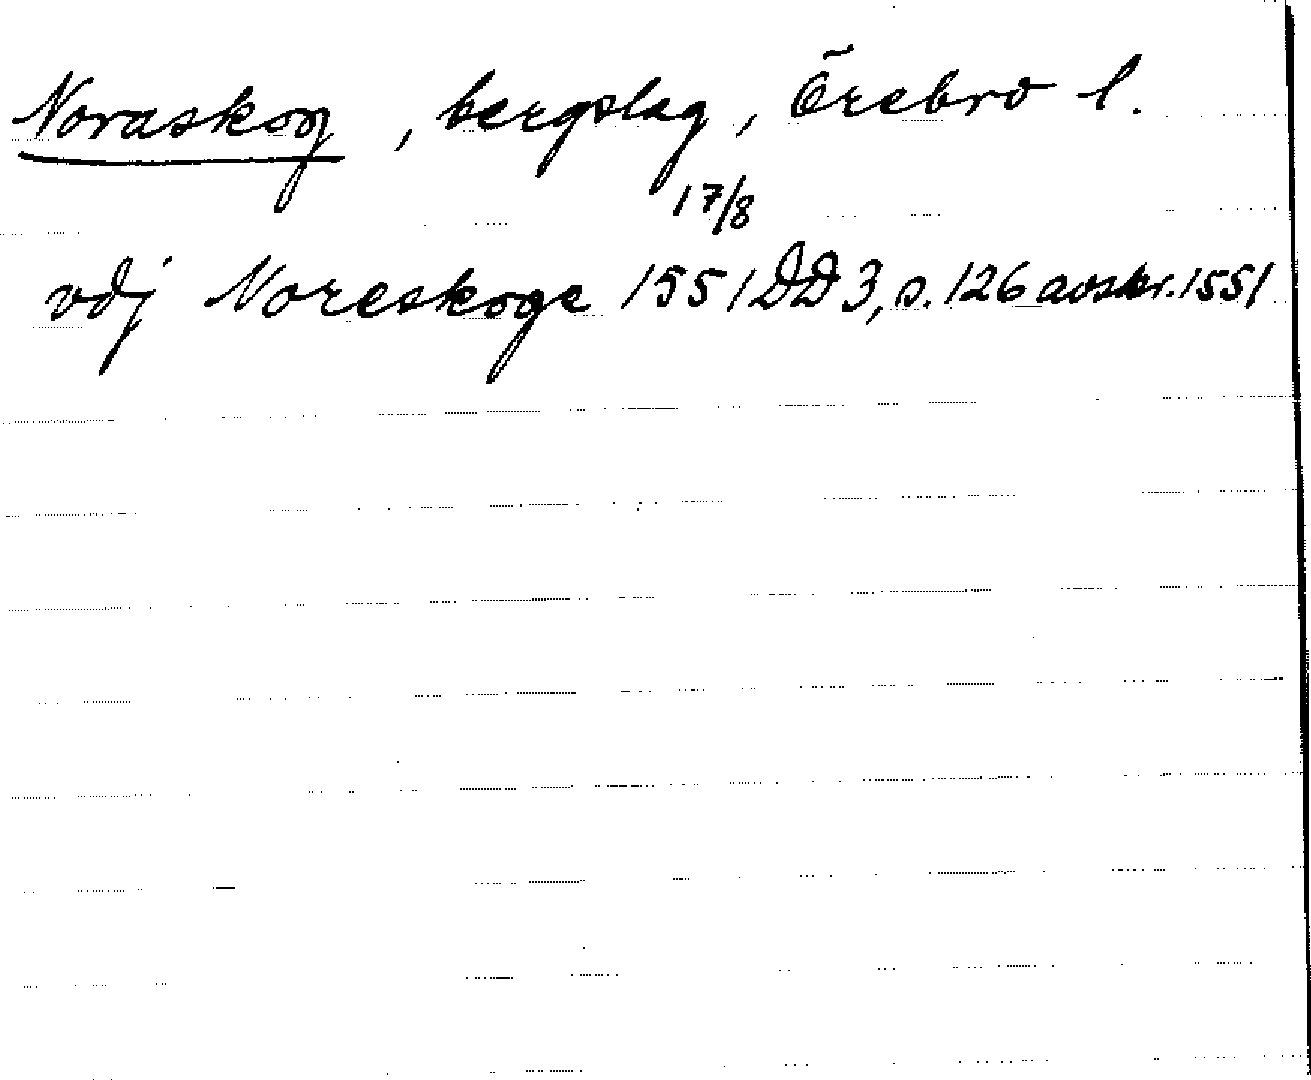 Noraskog, bergslag, Örebro l.
17/8
vdj Noreskoge 1551 DD 3, s. 126 avskr. 1551